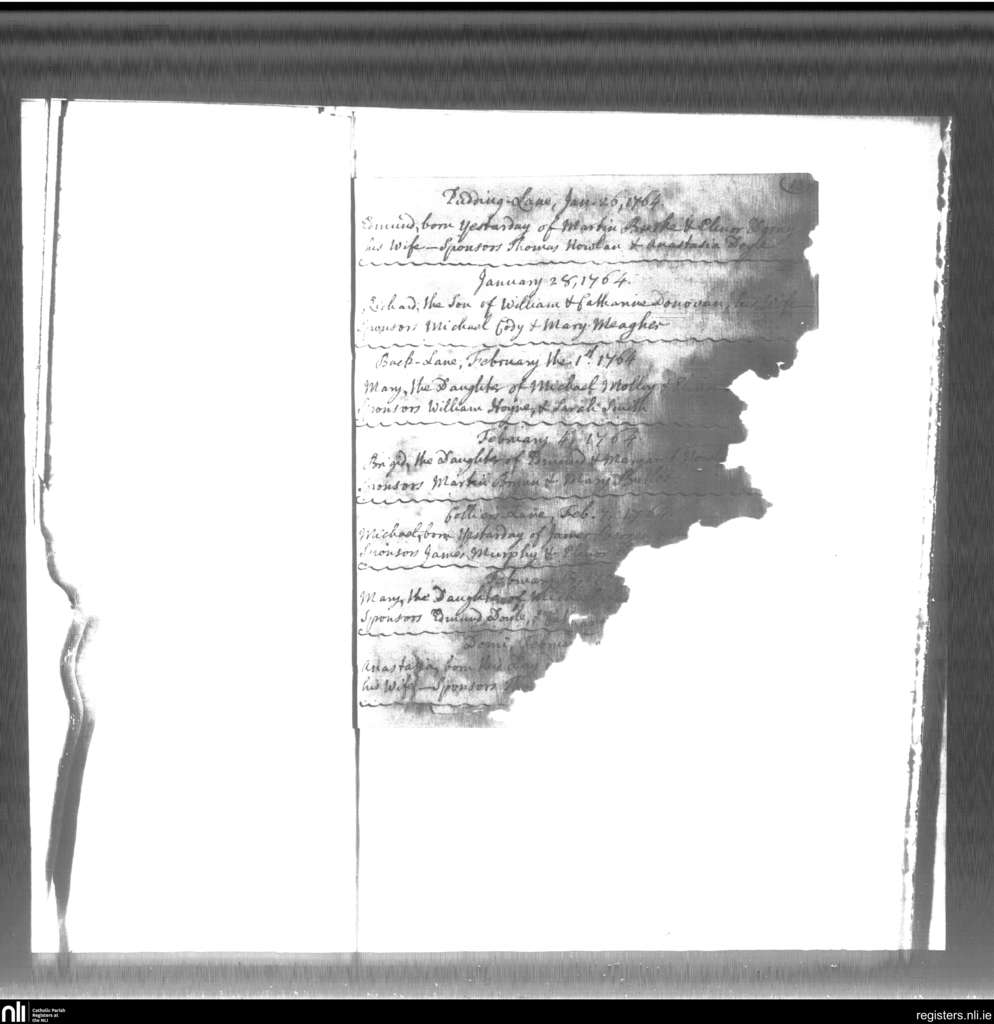 Pudding-Lane, Jan. 26, 1764.
Edmund, born Yesterday of Martin Burke & Elinor
his Wife — Sponsors Thomas Nowlan & Anastasia Doyle
January 28, 1764.
Richard, the Son of William & Catharine Donovan, his Wife
Sponsors Michael Cody & Mary Meagher
Back-Lane, February the 1st. 1764
Mary, the Daughter of Michael
Sponsors William Hoyne, & Sarah Smith
February 4, 1764
Brigid, the Daughter of Edmund &
Sponsors Martin & Mary
Lane, Feb.
Michael, born Yesterday of James
Sponsors James Murphy & Elinor
February
Mary, the Daughter of
Sponsors Edmund
Anastasia, born this day
his Wife — Sponsors
nli
Catholic Parish
Registers at
the NLI
registers.nli.ie